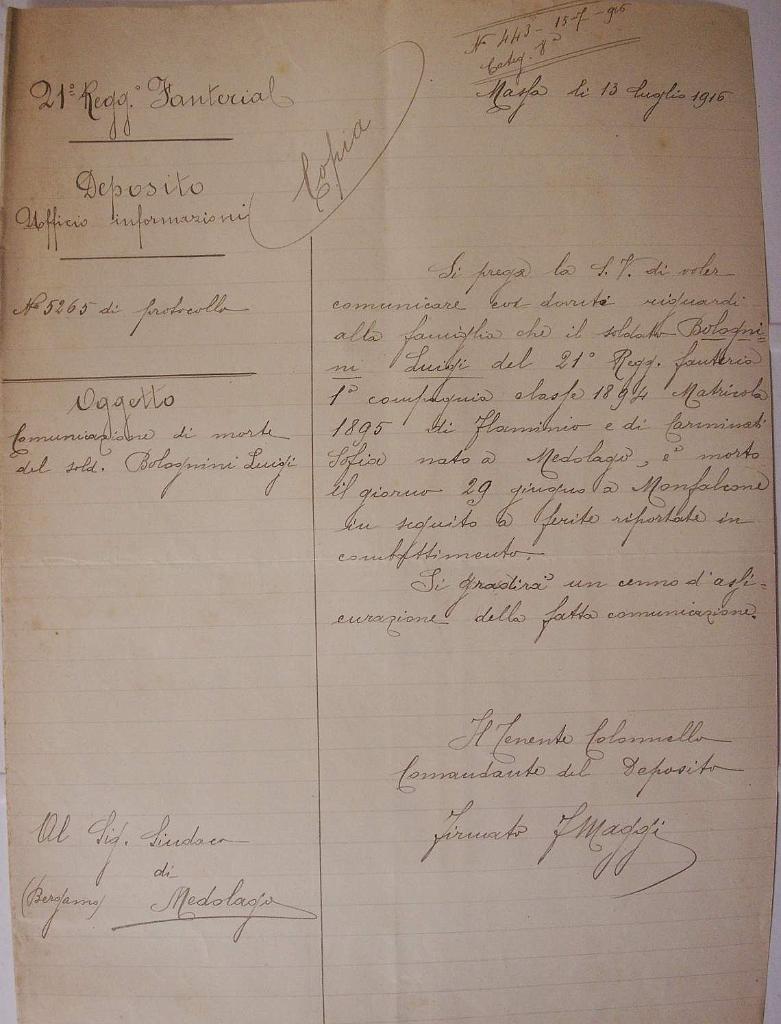 N. 443 - 15-7-916
Categ. 8ª
Massa li 13 luglio 1916
21° Regg.° Fanteria
Copia
Deposito
Ufficio informazioni
N° 5265 di protocollo
Oggetto
Comunicazione di morte
del sold. Bolognini Luigi
Si prega la S. V. di voler
comunicare coi dovuti riguardi
alla famiglia che il soldato Bologni-
ni Luigi del 21° Regg. fanteria
1ª compagnia classe 1894 Matricola
1895 di Flaminio e di Carminati
Sofia nato a Medolago, è morto
il giorno 29 giugno a Monfalcone
in seguito a ferite riportate in
combattimento.
Si gradirà un cenno d'assi-
curazione della fatta comunicazione.
Il Tenente Colonnello
Comandante del Deposito
Firmato F Maggi
Al Sig. Sindaco
di
(Bergamo) Medolago